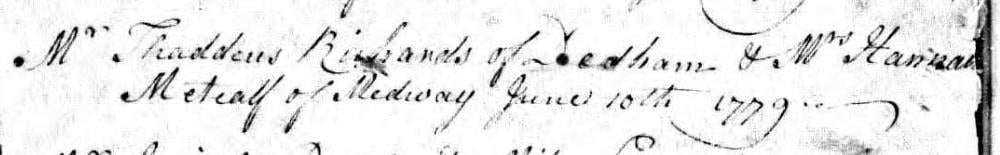 Mr Thaddeus Richards of Dedham & Mrs Hannah
Metcalf of Medway June 10th 1779